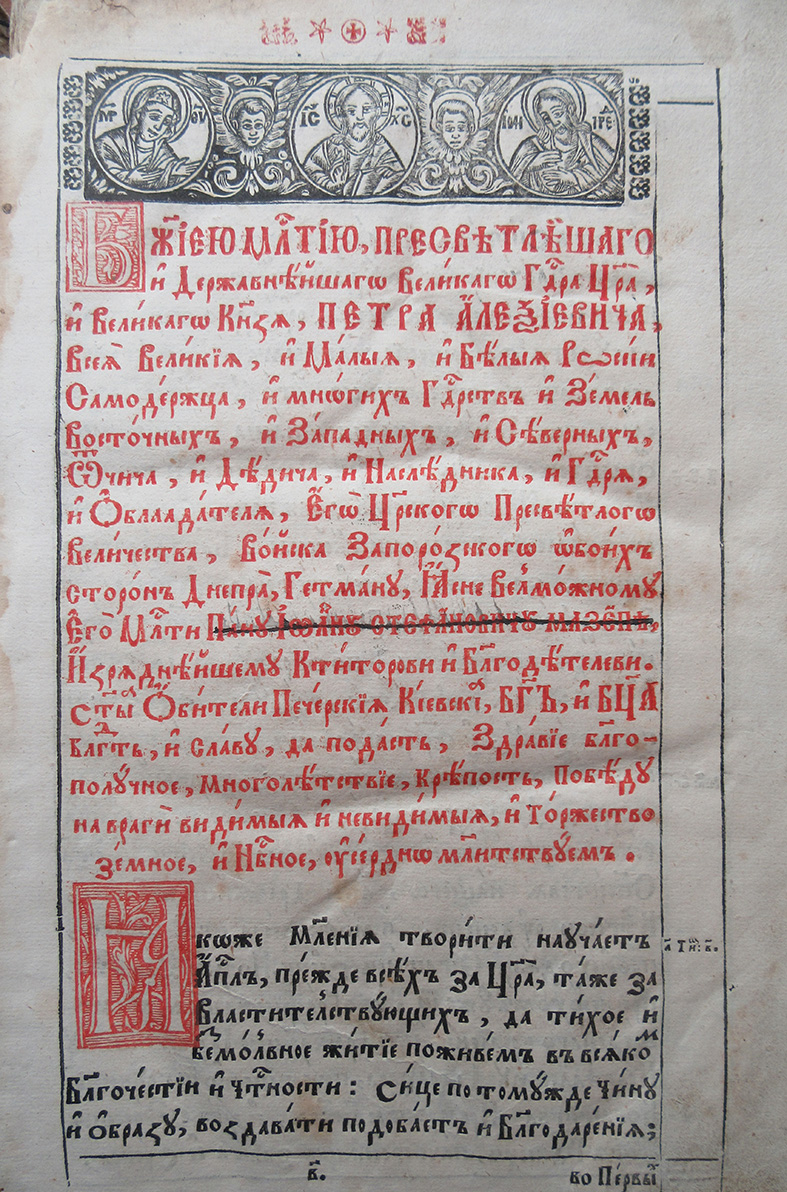 М҃Р Ѳ҃У ІС҃ ХС҃ ІѠАН ПРЕД
Бж҃їею мл҃тїю, пресвѣтлѣ́йшаго
и҆ Держа́внѣйшагѡ Вели́кагѡ Гд҃ра Цр҃ѧ̀,
и҆ Вели́кагѡ Кн҃зѧ, ПЕТРА А҆ЛЕѮІЕВИЧА,
всеѧ̀ Вели́кїѧ, и҆ Ма́лыѧ, и҆ Бѣ́лыѧ Рѡссі́и
Самоде́ржца, и҆ мнѡ́гихъ Гд҃рствъ и҆ Земе́ль
Восто́чныхъ, и҆ За́падныхъ, и҆ Сѣ́верныхъ,
Ѿчича, и҆ Дѣ́дича, и҆ Наслѣ́дника, и҆ Гд҃рѧ,
и҆ Ѡ҆блаада́телѧ, Е҆гѡ̀ Цр҃скогѡ Пресвѣ́тлогѡ
Вели́чества, Во́йска Запоро́зскогѡ ѡ҆бои́хъ
сторо́нъ Днепра̀, Ге́тману, Ꙗ҆сне Велмо́жному
Е҆го̀ Мл҃ти Па́ну І҆ѡа́нꙋ Стефа́новичꙋ Мазе́пѣ,
И҆зрѧ́днѣйшему Кти́торови и҆ Бл҃годѣ́телеви.
ст҃ы́ѧ Ѻ҆би́тели Пече́рскїѧ Кі́евскїѧ, БГ҃Ъ, и҆ БЦ҃А
бл҃года́ть, и҆ сла́ву, да пода́стъ, Здра́вїе бл҃го-
полу́чное, многолѣ́тствїе, крѣ́пость, побѣ́ду
на врагѝ ви́димыѧ и҆ неви́димыѧ, и҆ то́ржество
зе́мное, и҆ Нб҃ное, ᲂу҆се́рднѡ мл҃итствуемъ.
Ꙗ҆коже Мл҃енїѧ твори́ти науча́етъ
А҆пл҃ъ, пре́жде всѣ́хъ за Цр҃ѧ̀, та́же за
Властите́лствующихъ, да ти́хое и҆
безмо́лвное житїѐ поживе́мъ въ всѧ́комъ
бл҃гоче́стїи и҆ чт҃ности: си́це по тому́жде чи́ну
и҆ ѻ҆́бразу, воздава́ти подоба́етъ и҆ Бл҃годаре́нїѧ;
а҃ Ти: в҃.
в҃.
во Пе́рвы́хъ